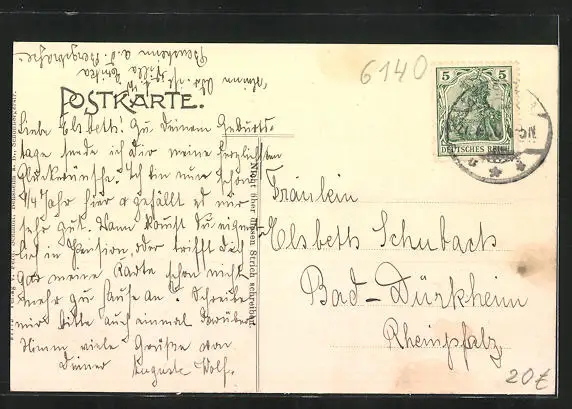 Bensheim a. d. Bergstraße.
Villa
6140
POSTKARTE.
5 5
DEUTSCHES REICH
5N
Liebe Elsbeth! Zu Deinem Geburts-
tage sende ich Dir meine herzlichsten
Glückwünsche. Ich bin nun schon
1/4 Jahr hier & gefällt es mir
sehr gut. Wann kommst Du eigent-
lich in Pension, oder trifft Dich
gar meine Karte schon nicht
mehr zu Hause an? Schreibe
mir bitte auch einmal darüber.
Nimm viele Grüße von
Deiner Auguste Wolf.
Nicht über diesen Strich schreiben!
Fräulein
Elsbeth Schubach
Bad-Dürkheim
Rheinpfalz.
20